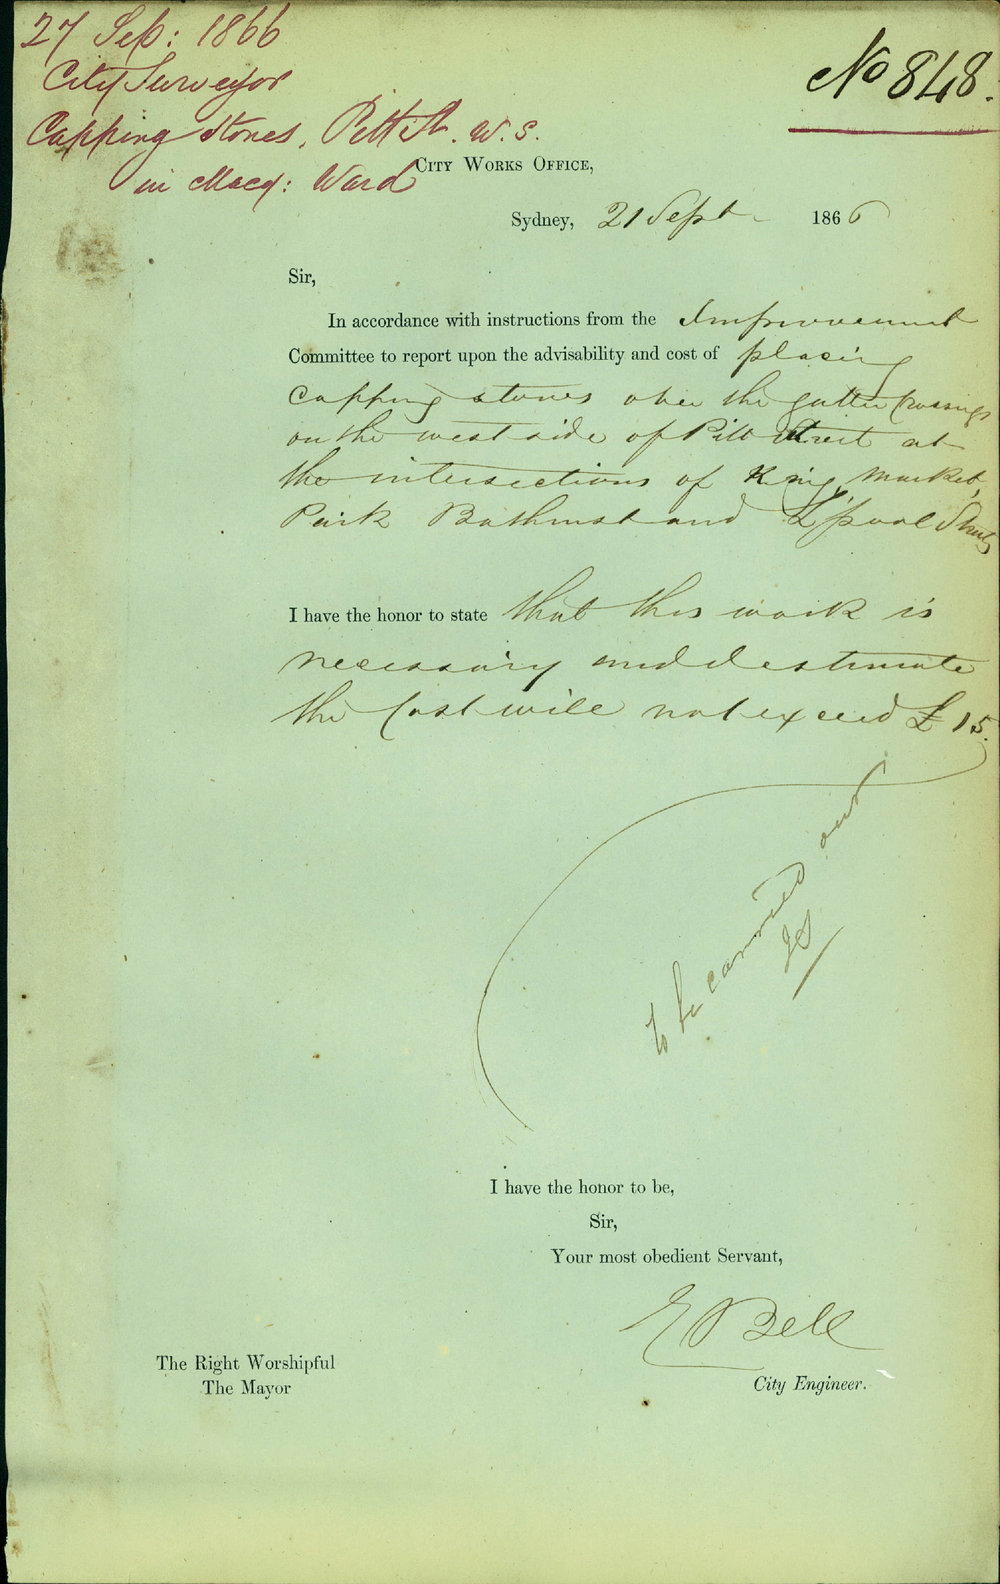 27 Sep: 1866
City Surveyor
Capping Stones, Pitt St. W. S.
in Macq: Ward
No 848.
City Works Office,
Sydney, 21 Sept 1866
Sir,
In accordance with instructions from the Improvement
Committee to report upon the advisability and cost of placing
capping stones over the gutter Crossings
on the west side of Pitt Street at
the intersections of King, Market,
Park Bathurst and L'pool Streets
I have the honor to state that this work is
necessary and estimate
the Cost will not exceed £15.
to be carried out
I have the honor to be,
Sir,
Your most obedient Servant,
E Bell
City Engineer.
The Right Worshipful
The Mayor